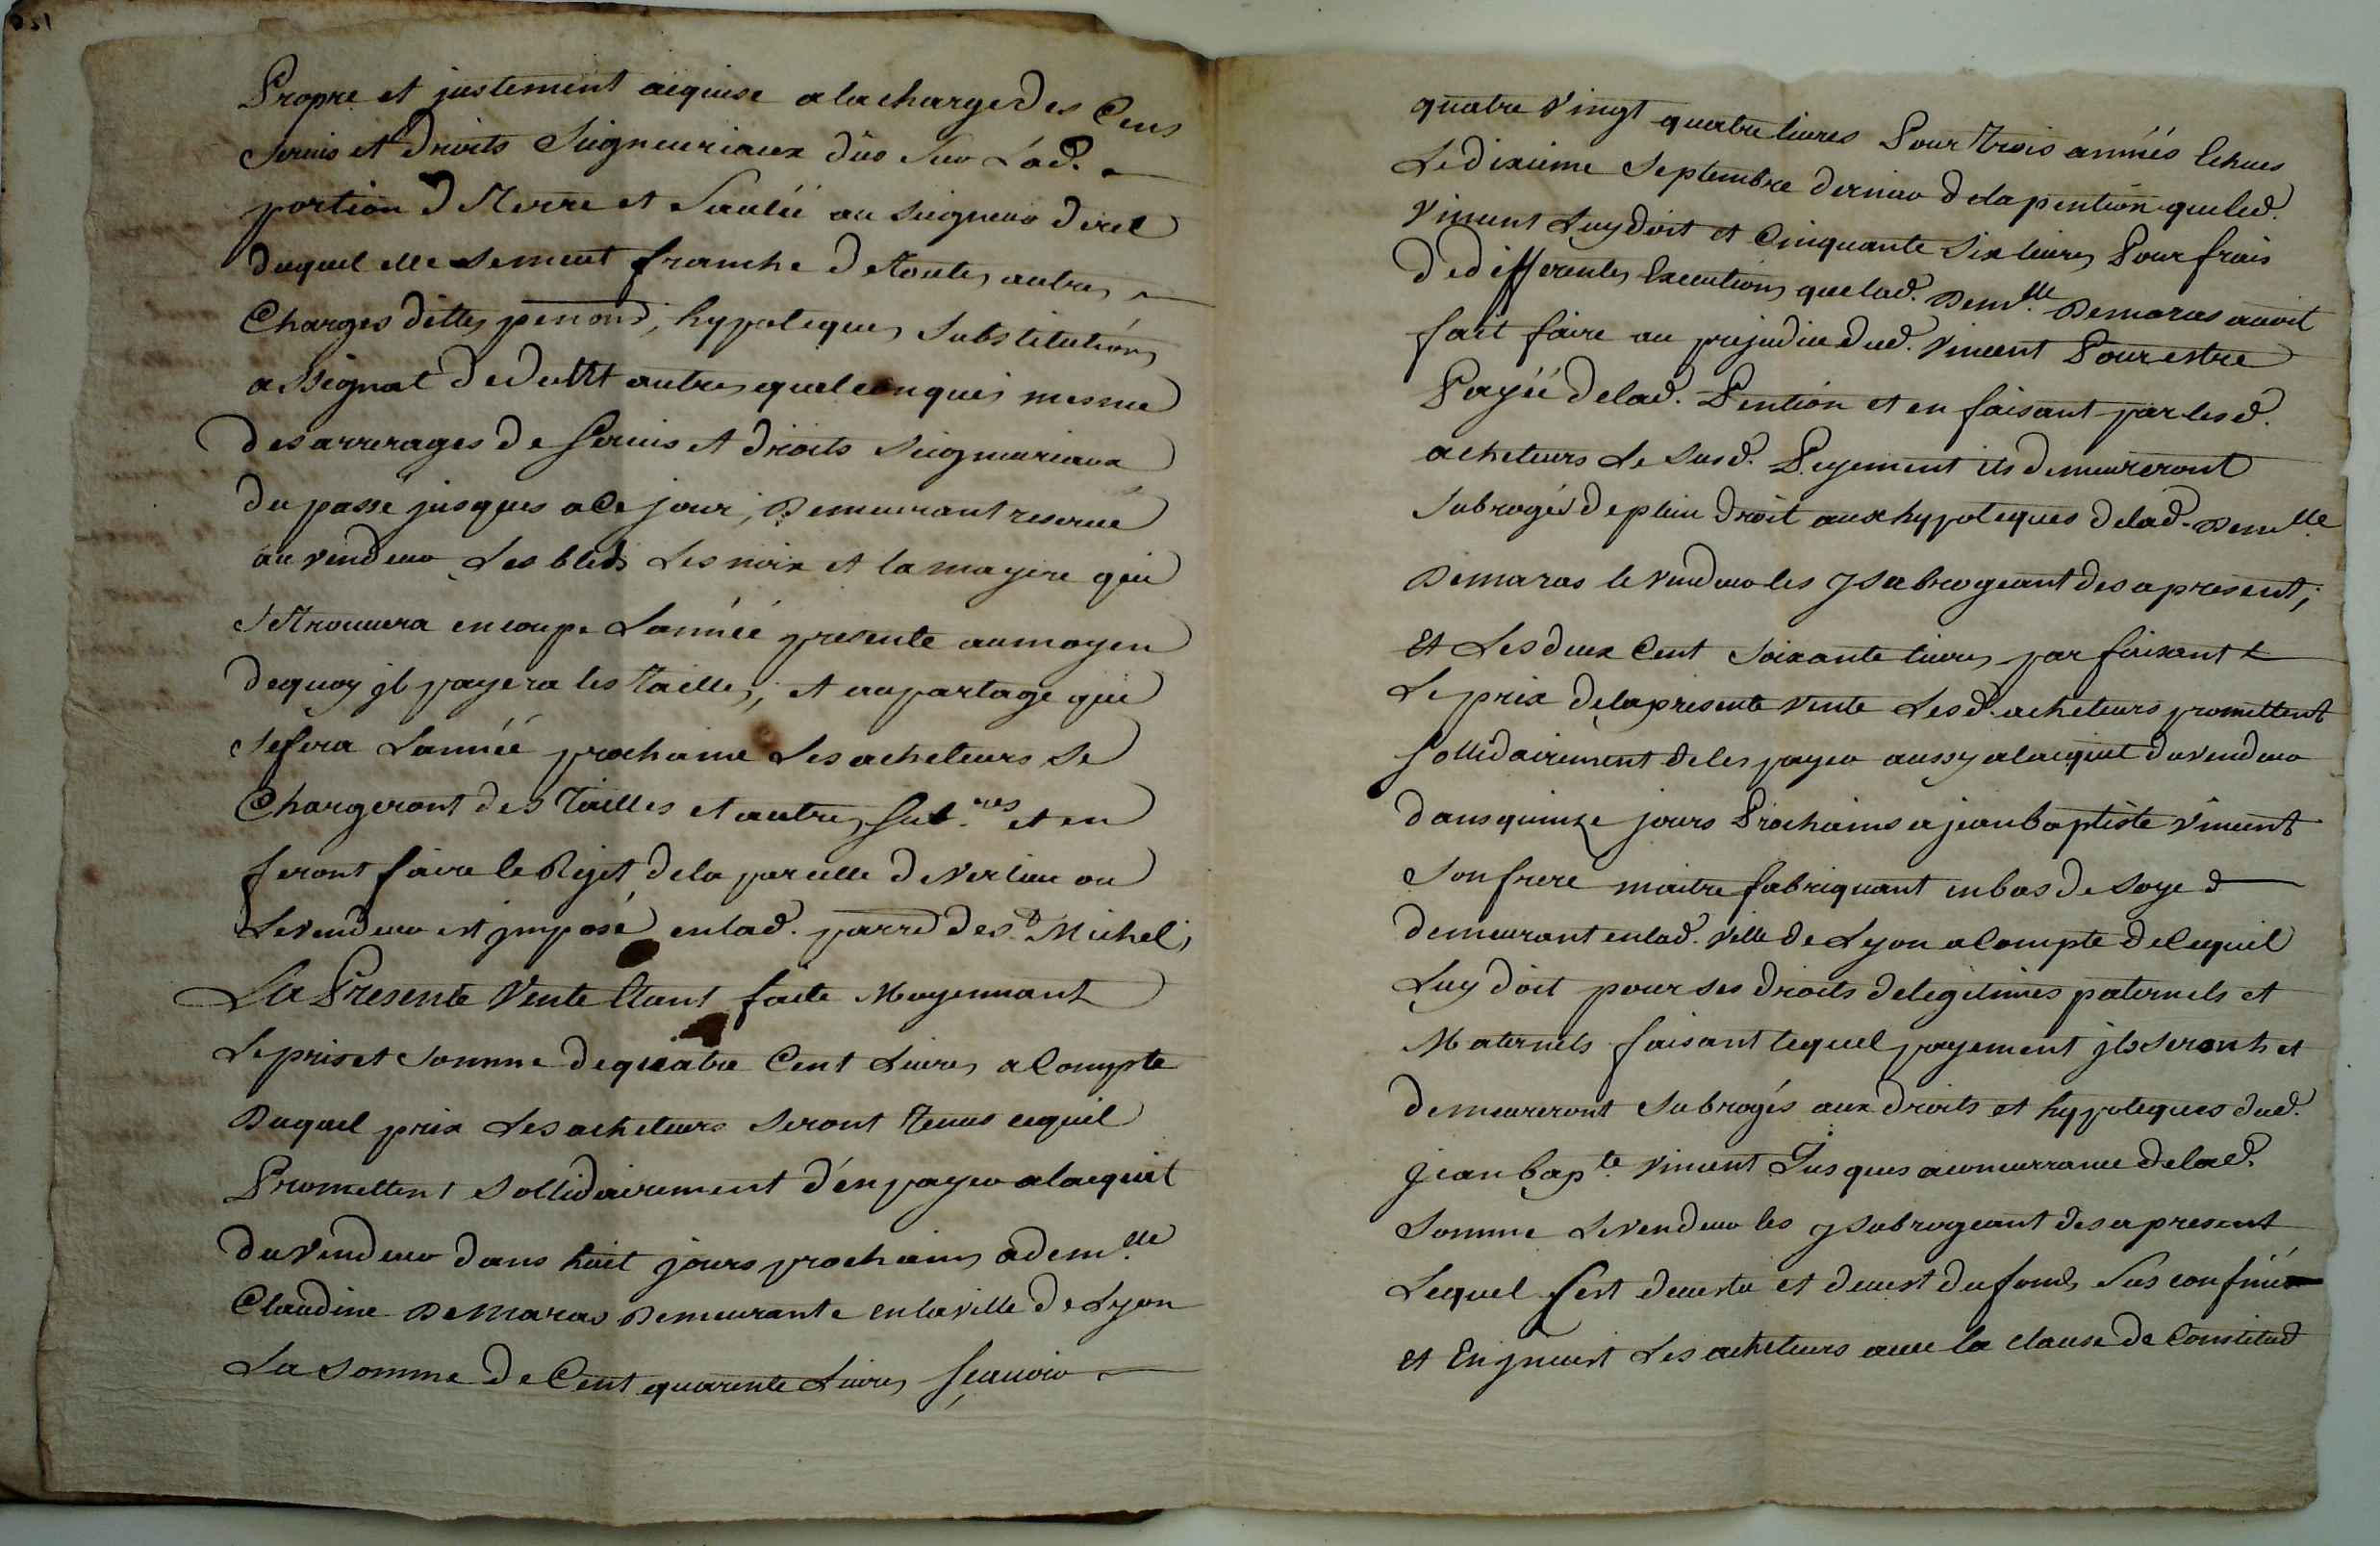 Propre et justement acquise a la charge des Cens
Servis et Droits Seigneuriaux dûs sur Lad.
portion De Terre et Saulée au seigneur direct
duquel elle se meut franche De Toutes autres
Charges dittes pensions, hypoteques substitutions
assignat De dotte et autres quelconques mesme
des arrerages De Servis et droits Seigneuriaux
du passé jusques a Ce jour, Demeurant reservé
au vendeur Les bleds Les noix et la mayere qui
Se Trouvera en coupe L'année presente au moyen
dequoy jl payera les Tailles; et au partage qui
Se fera L'année prochaine Les acheteurs se
Chargeront des Tailles et autres sub.nes et en
feront faire le Rejet de la parcelle De Verlieu ou
Le vendeur est jmposé en lad. parr.e De S.t Michel,
La Presente Vente Etant faite Moyennant
Le prix et Somme De quatre Cent Livres a Compte
Duquel prix Les acheteurs Seront Tenus cequ'il
Promettent Sollidairement d'en payer a lacquit
du Vendeur dans huit jours prochains a dem.lle
Claudine Demaras Demeurante en la ville De Lyon
La Somme De Cent quarente Livres Sçavoir
quatre Vingt quatre livres Pour Trois années Echues
Le dixieme Septembre dernier De la pention que led.
Vincent Luy doit et Cinquante Six livres Pour frais
De differentes Executions que lad. Dem.lle Demaras avoit
fait faire au prejudice dud. Vincent Pour estre
Payée De lad. Pention et en faisant par les d.
acheteurs Le Susd. Peyement ils demeureront
Subrogés De plein Droit aux hypoteques De lad. Dem.lle
Demaras le Vendeur les y Subrogeant des a present;
Et Les deux Cent Soixante livres parfaisant
Le prix De la presente Vente Les d. acheteurs promettent
Sollidairement De les payer aussy a lacquit du vendeur
dans quinze jours Prochains a jean baptiste Vincent
Son frere maitre fabriquant en bas De Soye
demeurant en lad. Ville De Lyon a Compte De Cequil
Luy doit pour ses droits De legitimes paternels et
Maternels faisant lequel payement jls seront et
demeureront Subrogés aux droits et hypoteques dud.
jean bap.te Vincent Jusques a concurrance De lad.
Somme Le vendeur les y Subrogeant des a present
Lequel S'est devestu et devest du fonds Sus confiné
et En jnvest Les acheteurs avec la clause De Constitud